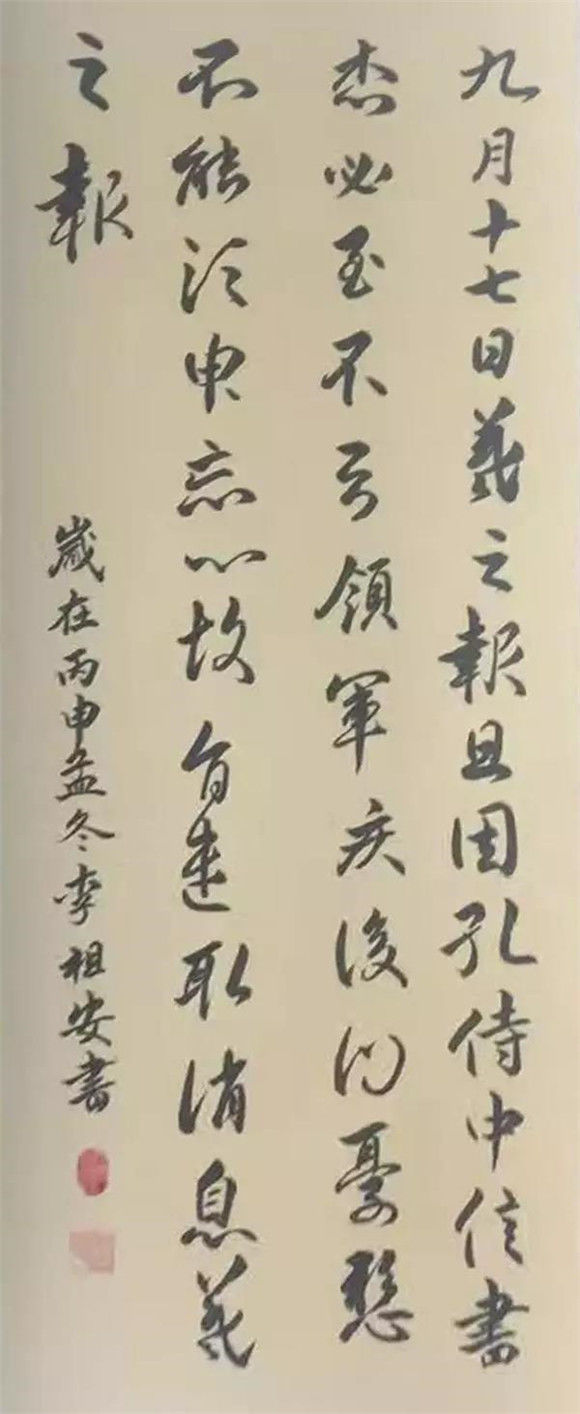 九月十七日羲之報且因孔侍中信書
想必至不知領軍疾後問憂懸
不能須臾忘心故旨遣取消息羲
之報
歲在丙申孟冬李祖安書